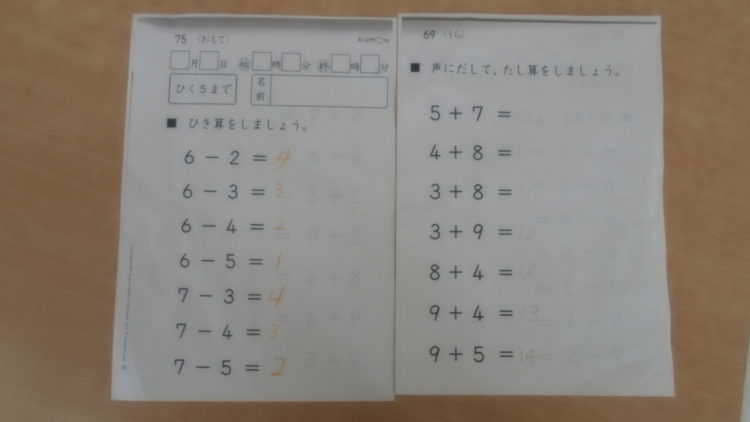 75 (おもて)
KUMON
月 日 始 時 分 終 時 分
ひく5まで
名前
■ ひき算をしましょう。
6 − 2 = 4
6 − 3 = 3
6 − 4 = 2
6 − 5 = 1
7 − 3 = 4
7 − 4 = 3
7 − 5 = 2
69 (うら)
■ 声にだして、たし算をしましょう。
5 + 7 = 12
4 + 8 = 12
3 + 8 = 11
3 + 9 = 12
8 + 4 = 12
9 + 4 = 13
9 + 5 = 14